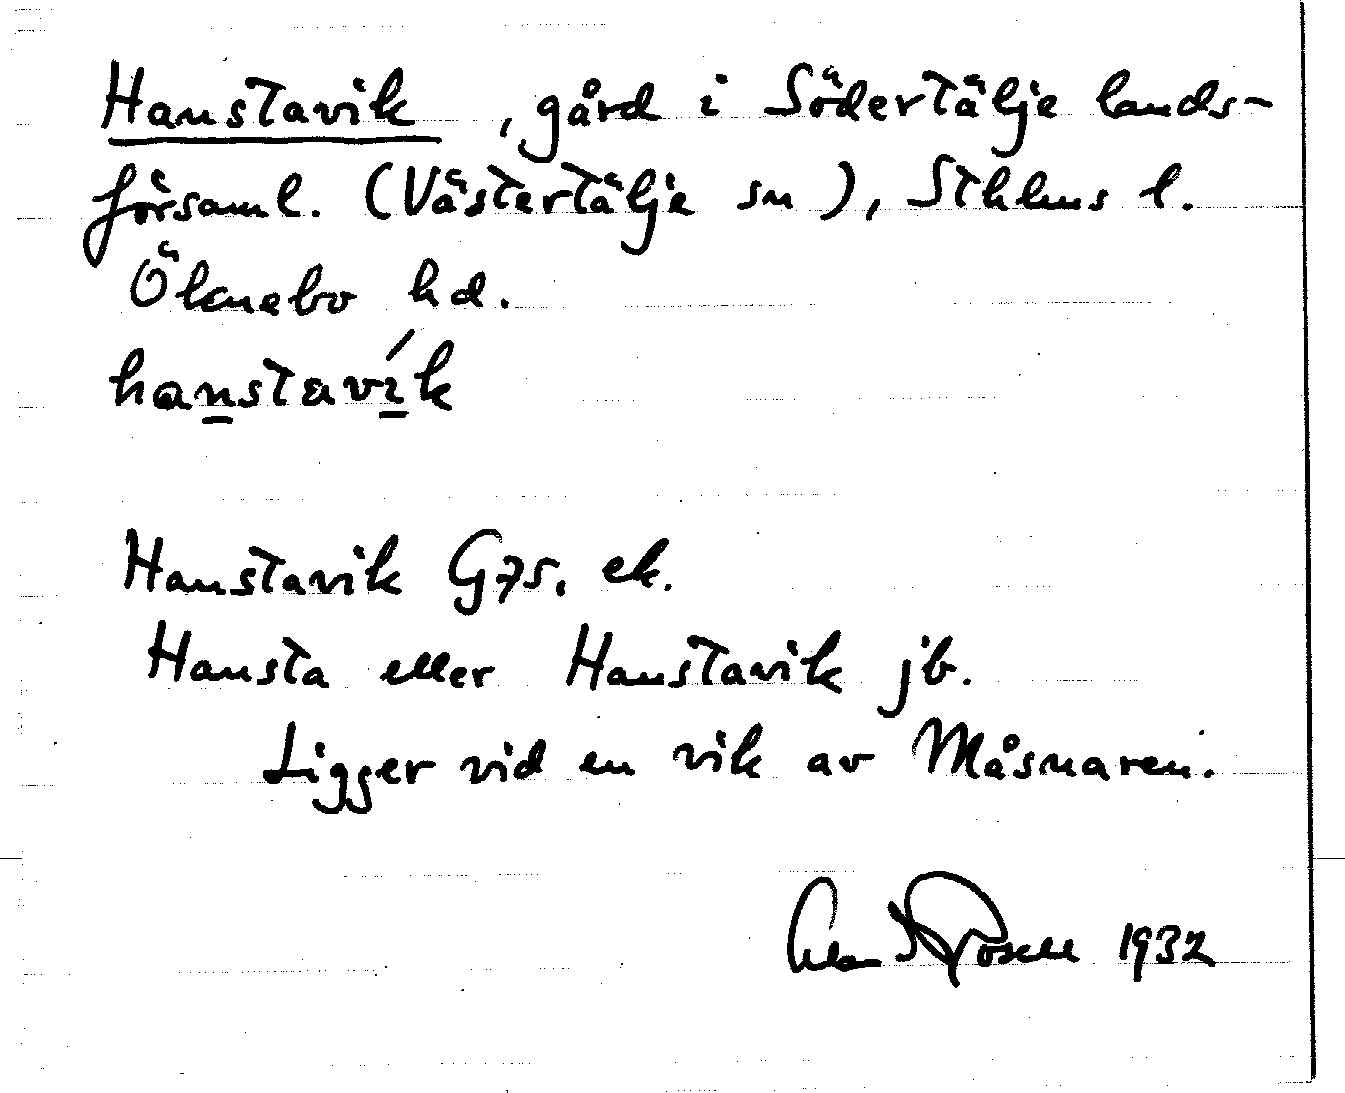 Hanstavik, gård i Södertälje lands-
församl. (Västertälje sn), Sthlms l.
Öknebo hd.
hanstavík
Hanstavik G75. ek.
Hansta eller Hanstavik jb.
Ligger vid en vik av Måsnaren.
1932